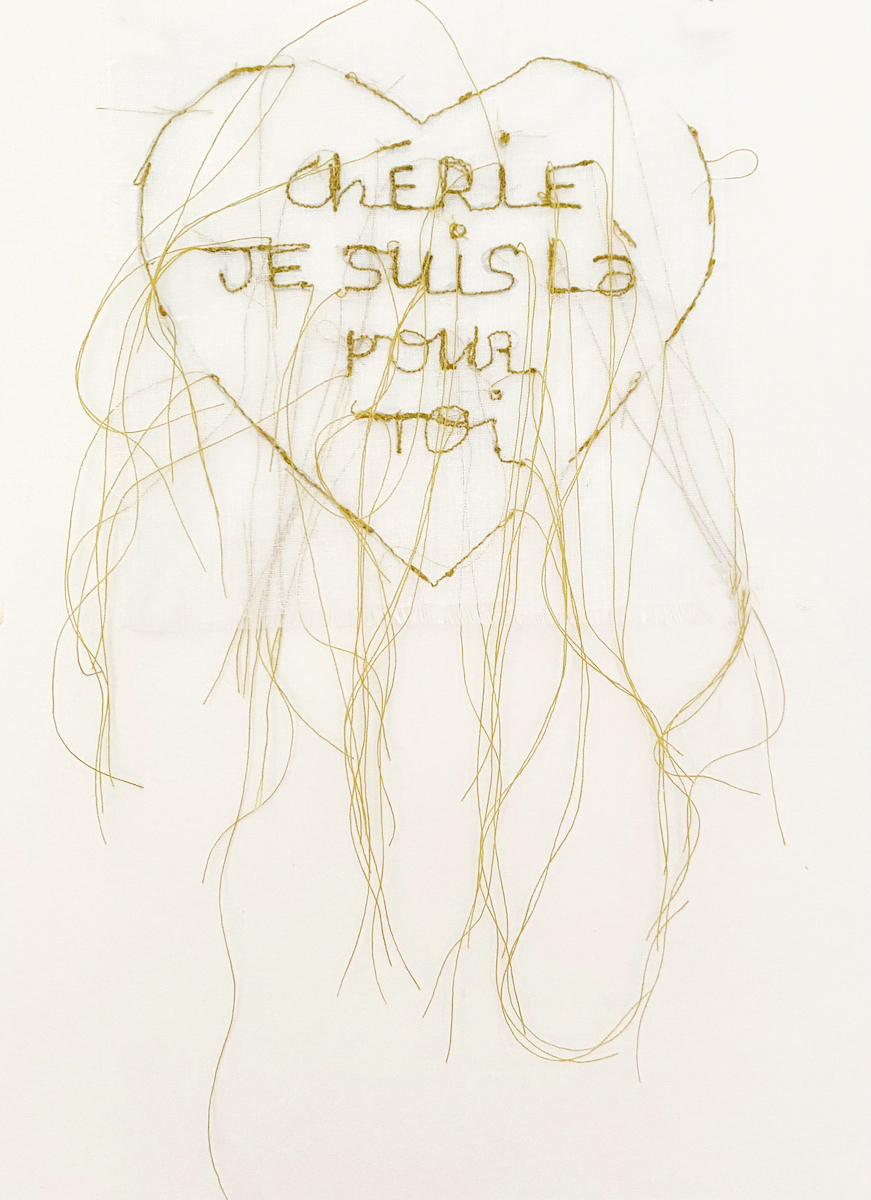 ChÉRIE
JE SUiS La
pOUR
TOi